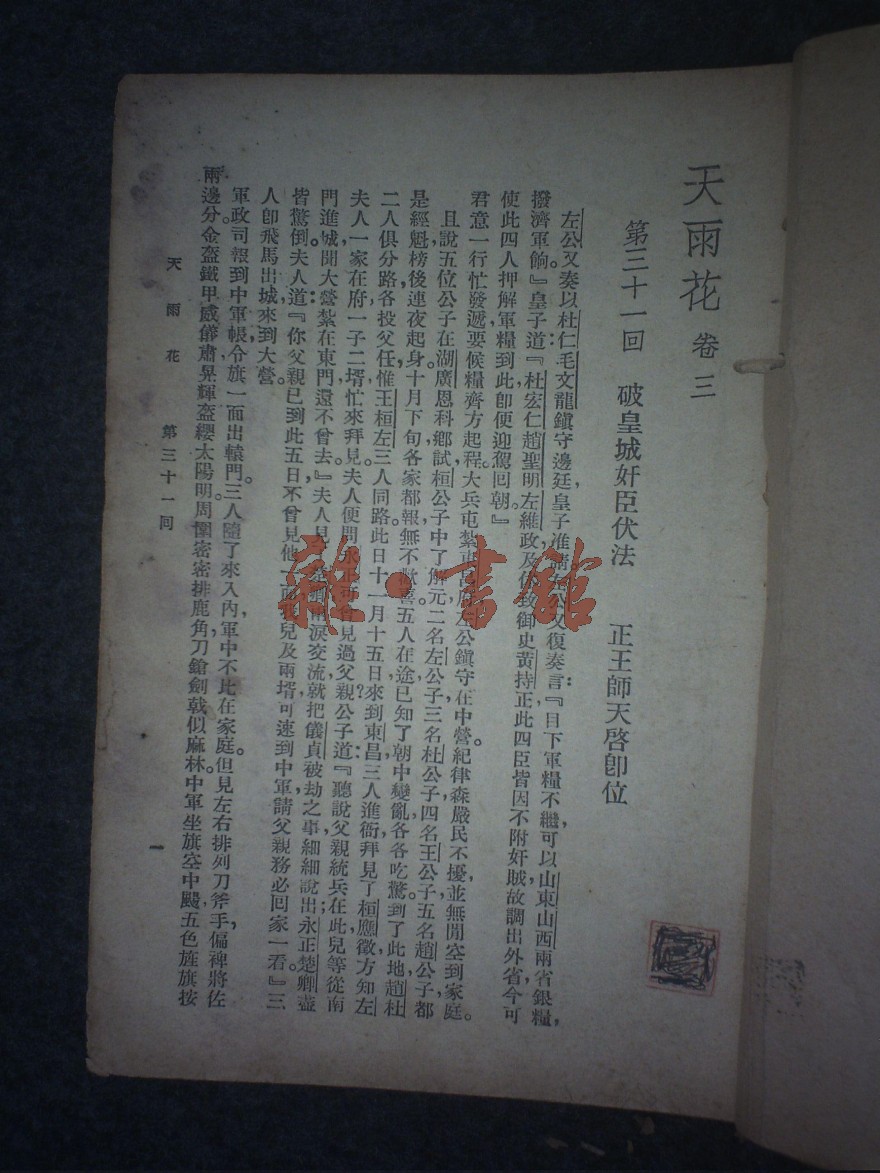 天雨花 卷三
第三十一回 破皇城奸臣伏法 正王師天啓卽位
左公又奏以杜仁毛文龍鎭守邊廷皇子准請左公又復奏言：『目下軍糧不繼可以山東山西兩省銀糧，
撥濟軍餉。』皇子道：『杜宏仁趙聖明左維政及僉都御史黃持正此四臣皆因不附奸賊故調出外省今可
使此四人押解軍糧到此卽便迎駕囘朝。』
君意一行忙發遞要候糧齊方起程。大兵屯紮東昌府左公鎭守在中營。紀律森嚴民不擾，並無閒空到家庭。
且說五位公子在湖廣恩科鄉試，桓公子中了解元二名左公子三名杜公子四名王公子五名趙公子都
是經魁。榜後連夜起身，十月下旬各家都報無不歡喜。五人在途已知了朝中變亂各各吃驚。到了此地趙杜
二人俱分路各投父任惟王桓左三人同路此日十一月十五日來到東昌三人進衙拜見了桓應徵方知左
夫人一家在府，一子二壻忙來拜見。夫人便問永正可曾見過父親？公子道：『聽說父親統兵在此兒等從南
門進城聞大營紮在東門還不曾去。』夫人見 淚交流，就把儀貞被劫之事，細細說出；永正楚卿盡
皆驚倒。夫人道：『你父親已到此五日，不曾見他一面我兒及兩壻可速到中軍，請父親務必囘家一看。』三
人卽飛馬出城，來到大營。
軍政司報到中軍帳，令旗一面出轅門。三人隨了來入內，軍中不比在家庭。但見左右排列刀斧手，偏裨將佐
兩邊分。金盔鐵甲威儀肅，晃輝盔纓太陽明。周圍密密排鹿角，刀鎗劍戟似麻林。中軍坐旗空中颺，五色旌旗按
天雨花 第三十一回
一
雜·書館